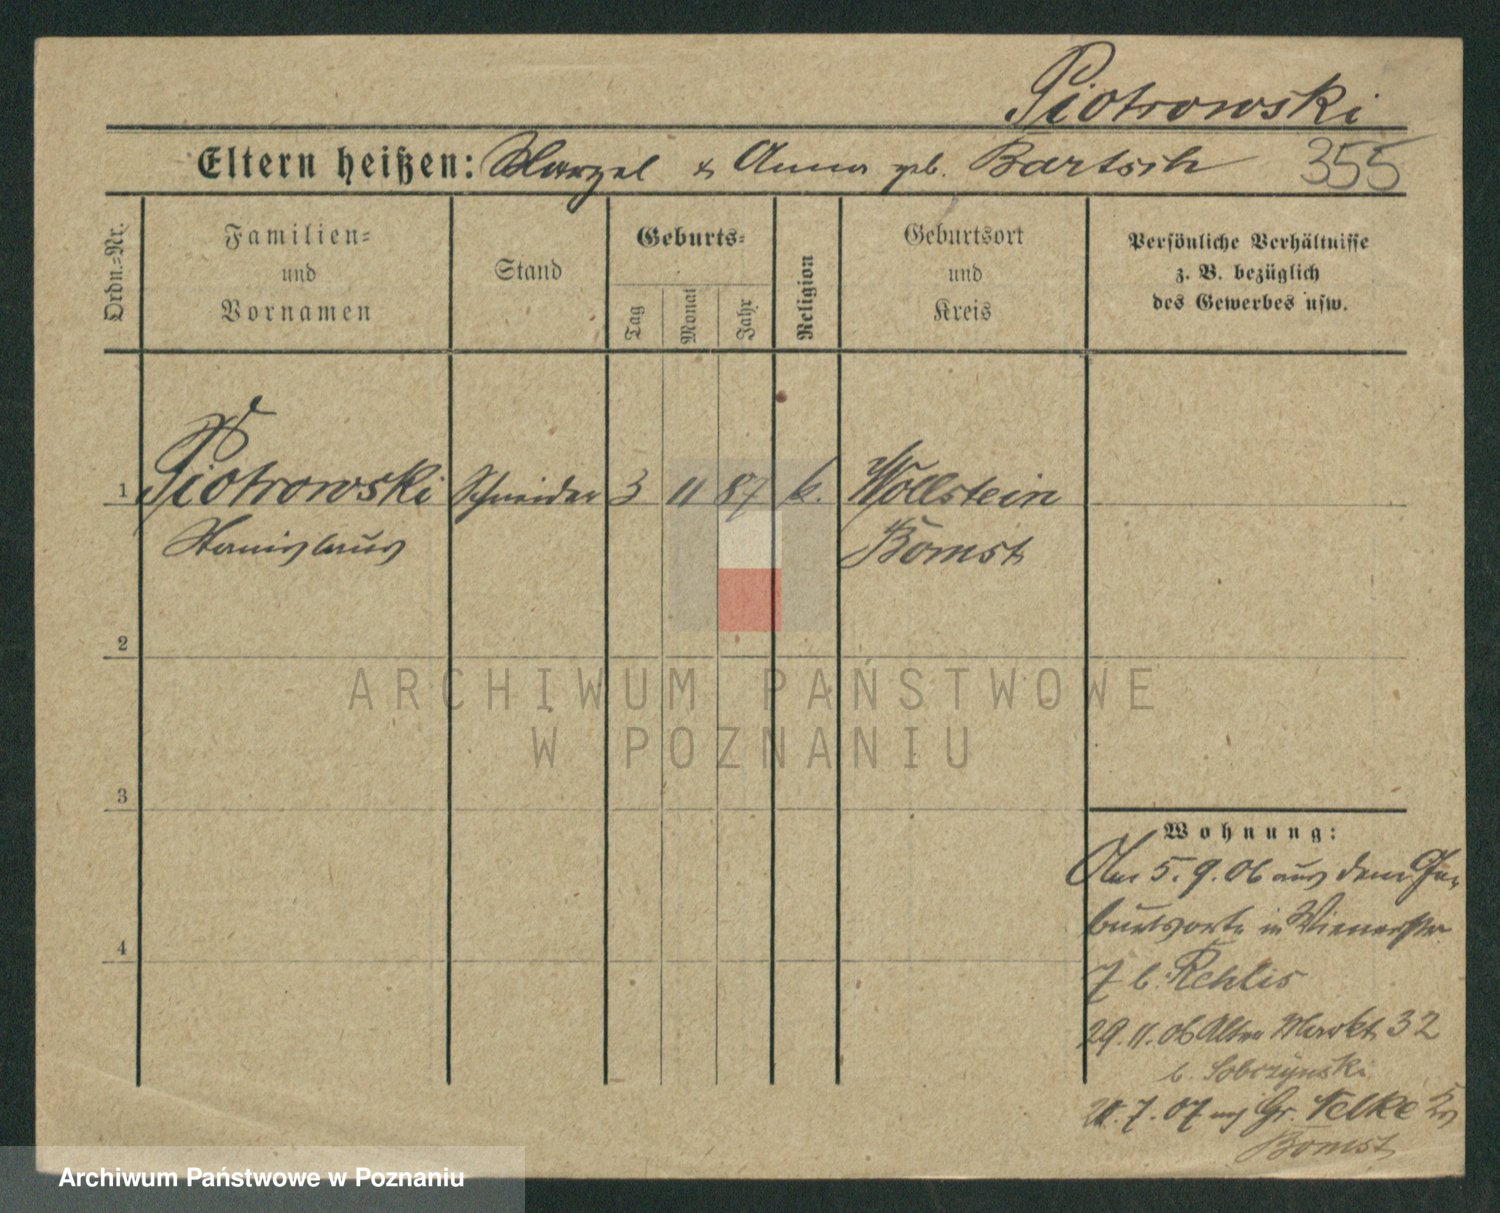 Piotrowski
Eltern heißen: & Anna geb. Bartsch 355
Ordn.-Nr.
Familien-
und
Vornamen
Stand
Geburts-
Tag
Monat
Jahr
Religion
Geburtsort
und
Kreis
Persönliche Verhältnisse
z. B. bezüglich
des Gewerbes usw.
1 Piotrowski Schneider 3 11 87 k. Wollstein
Stanislaus Bomst
2
ARCHIWUM PAŃSTWOWE
W POZNANIU
3
Wohnung:
Am 5.9.06 aus dem Ge-
burtsorte in Wienerstr
7 b.
29.11.06 Alter Markt 32
b. Sobczynski
7.07 Gr.
Bomst
4
Archiwum Państwowe w Poznaniu